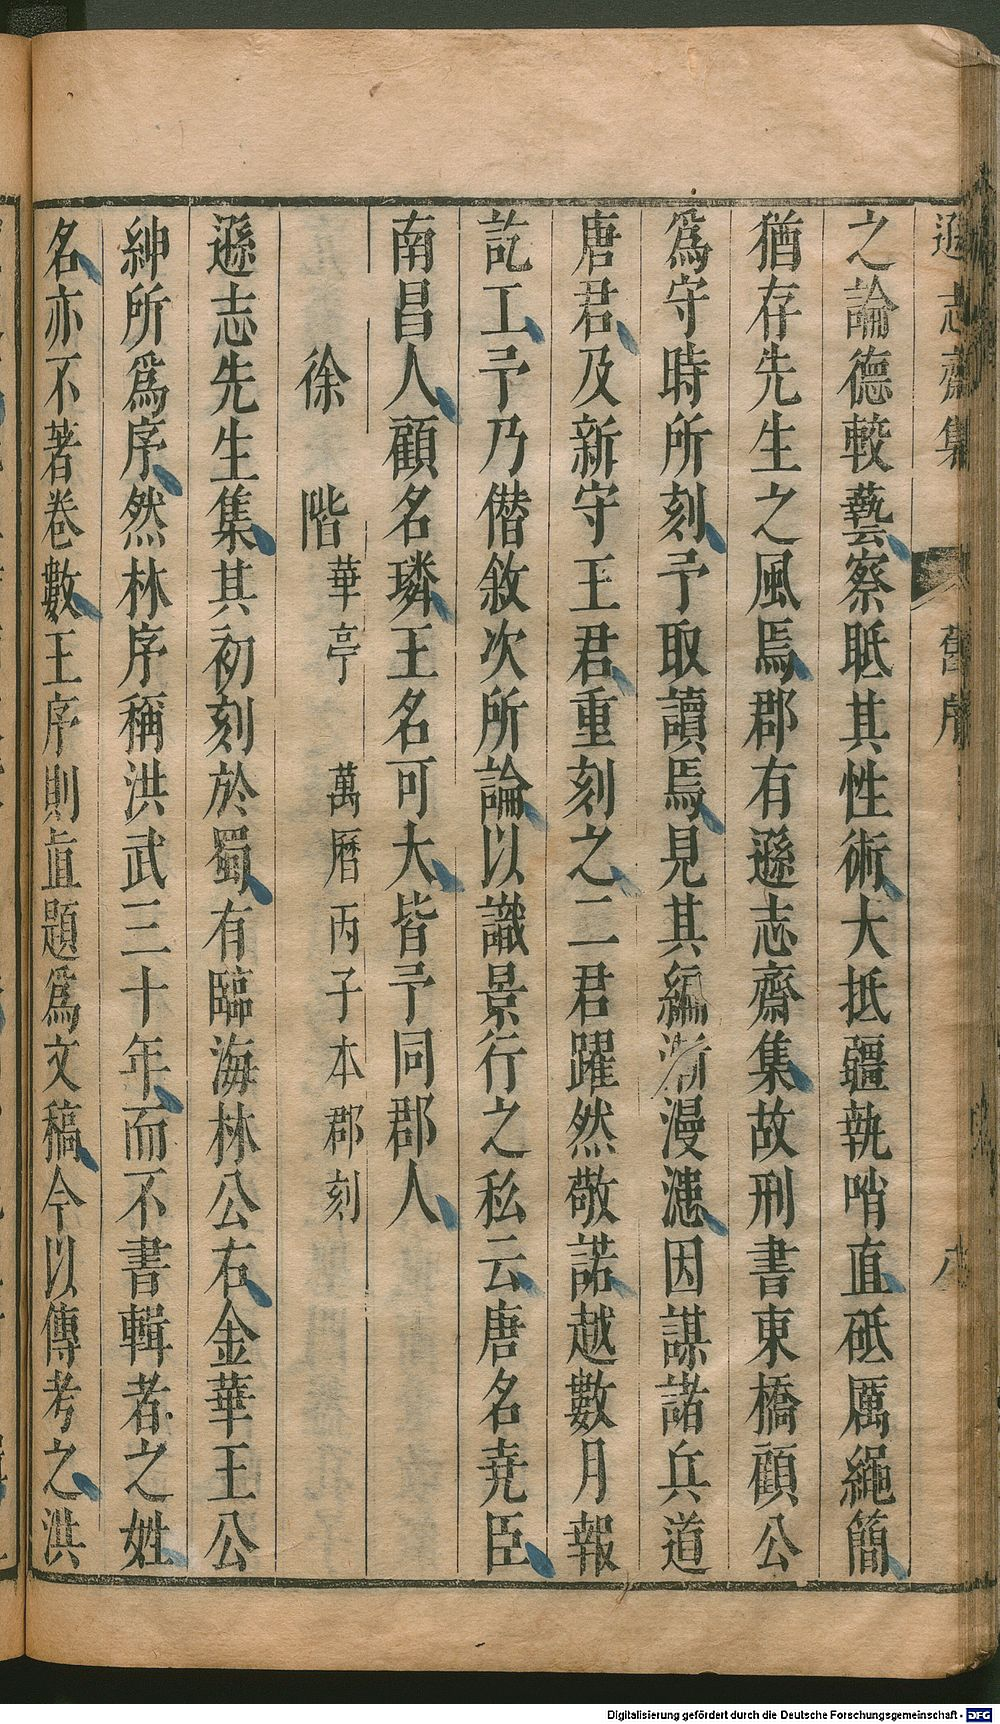 遜志齋集
舊序
八
之論德較藝察眂其性術大抵疆執哨直砥厲繩簡
猶存先生之風焉郡有遜志齋集故刑書東橋顧公
爲守時所刻予取讀焉見其編漸漫漶因謀諸兵道
唐君及新守王君重刻之二君躍然敬諾越數月報
訖工予乃僭敘次所論以識景行之私云唐名堯臣
南昌人顧名璘王名可大皆予同郡人
徐階華亭 萬曆丙子本郡刻
遜志先生集其初刻於蜀有臨海林公右金華王公
紳所爲序然林序稱洪武三十年而不書輯者之姓
名亦不著卷數王序則直題爲文稿今以傳考之洪
Digitalisierung gefördert durch die Deutsche Forschungsgemeinschaft - DFG